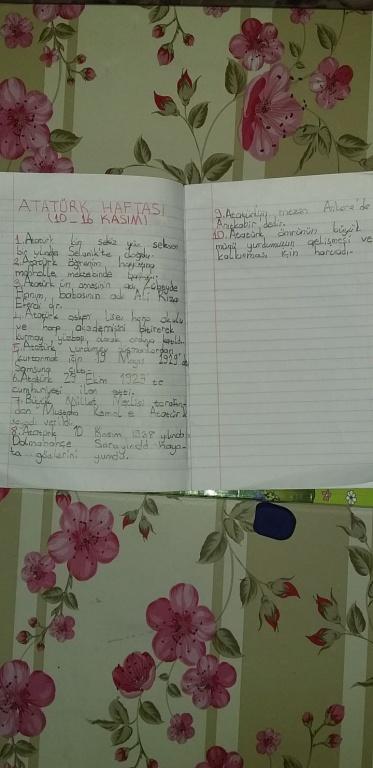 ATATÜRK HAFTASI
(10-16 KASIM)
1. Atatürk bin sekiz yüz seksen
bir yılında Selanik'te doğdu.
2. Atatürk öğrenim hayatına
mahalle mektebinde
3. Atatürk'ün annesinin adı Zübeyde
Hanım, babasının adı Ali Rıza
Efendi'dir.
4. Atatürk askeri lise, harp okulu
ve harp akademisini bitirerek
kurmay yüzbaşı olarak orduya katıldı.
5. Atatürk yurdumuzu düşmanlardan
kurtarmak için 19 Mayıs
Samsuna çıktı.
6. Atatürk 29 Ekim 1923 te
cumhuriyeti ilan etti.
7. Büyük Millet Meclisi tarafın-
dan Mustafa Kemal'e Atatürk
soyadı verildi.
8. Atatürk 10 Kasım 1938 yılında
Dolmabahçe Sarayında haya-
ta gözlerini yumdu.
9. Atatürk'ün mezarı Ankara'da
Anıtkabir'dedir.
10. Atatürk ömrünün büyük
yurdumuzun gelişmesi ve
kalkınması için harcadı.